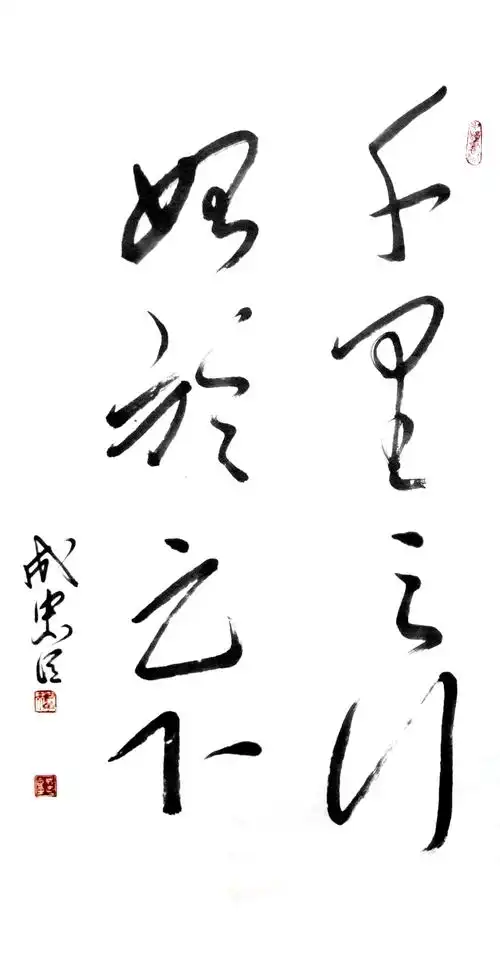 千里之行
始於足下
成忠臣